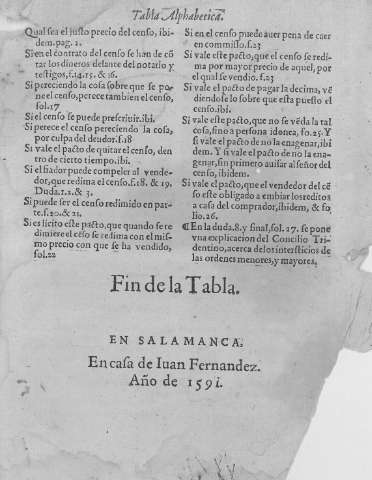 Tabla Alphabetica.
Qual sea el justo precio del censo, ibi-
dem. pag. 2.
Si en el contrato del censo se han de cō
tar los dineros delante del notario y
testigos, f. 14. 15. & 16.
Si pereciendo la cosa sobre que se po-
ne el censo, perece tambien el censo,
fol. 17
Si el censo se puede prescriuir. ibi.
Si perece el censo pereciendo la cosa,
por culpa del deudor. f. 18
Si vale el pacto de quitar el censo, den
tro de cierto tiempo. ibi.
Si el fiador puede compeler al vende-
dor, que redima el censo. f. 18. & 19.
Duda. 1. 2. & 3.
Si puede ser el censo redimido en par-
te. f. 20. & 21.
Si es licito este pacto, que quando se re
dimiere el cēso se redima con el mis-
mo precio con que se ha vendido,
fol. 22
Si en el censo puede auer pena de caer
en commisso. f. 23
Si vale este pacto, que el censo se redi-
ma por mayor precio de aquel, por
el qual se vendio. f. 23
Si vale el pacto de pagar la decima, vē
diendose lo sobre que esta puesto el
censo. ibi.
Si vale este pacto, que no se vēda la tal
cosa, sino a persona idonea, fo. 25. Y
si vale el pacto de no la enagenar, ibi
dem. Y si vale el pacto de no la ena-
genar, sin primero auisar al señor del
censo, ibidem.
Si vale el pacto, que el vendedor del cē
so este obligado a embiar los reditos
a casa del comprador, ibidem, & fo
lio. 26.
¶ En la duda. 8. y final, fol. 27. se pone
vna explicacion del Concilio Tri-
dentino, acerca de los intersticios de
las ordenes menores, y mayores.
Fin de la Tabla.
EN SALAMANCA.
En casa de Iuan Fernandez.
Año de 1591.